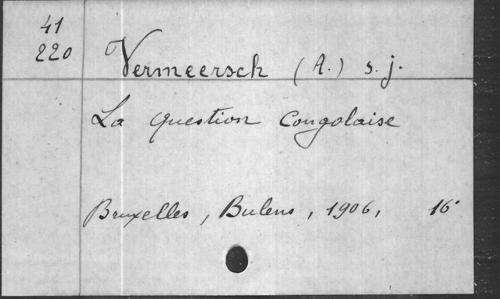 41
220
Vermeersch (A.) s.j.
La question Congolaise
Bruxelles, Bulens, 1906, 16°